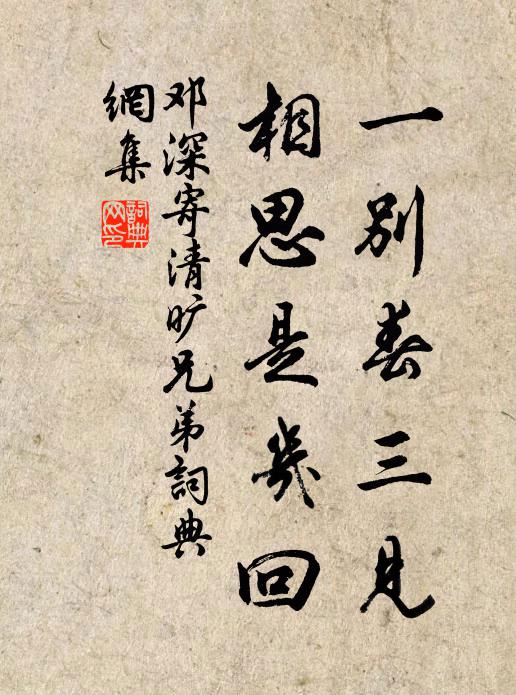 一别春三见
相思是几回
邓深寄清旷兄弟詞典
網集
詞典
网印